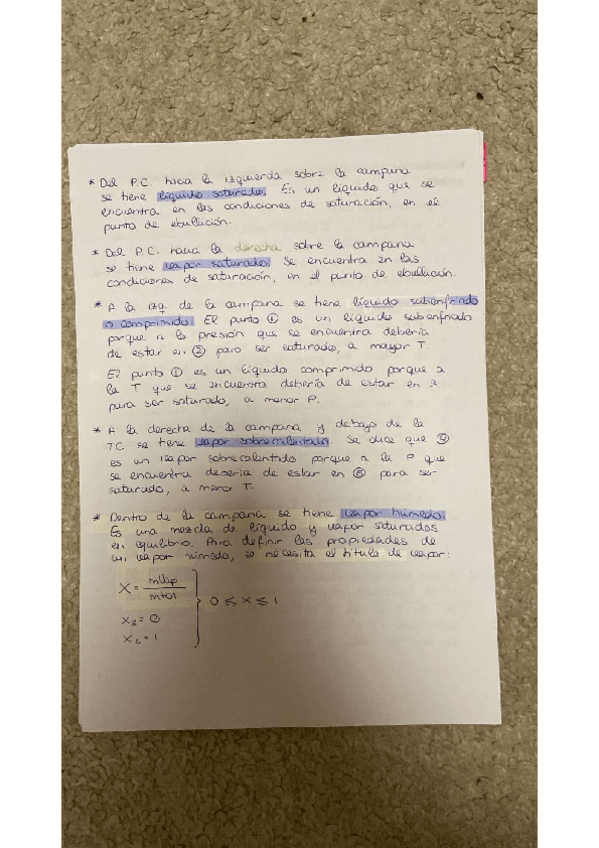 * Del P.C. hacia la izquierda sobre la campana
se tiene líquido saturado. Es un líquido que se
encuentra en las condiciones de saturación, en el
punto de ebullición.
* Del P.C. hacia la derecha sobre la campana
se tiene vapor saturado. Se encuentra en las
condiciones de saturación, en el punto de ebullición.
* A la izq. de la campana se tiene líquido subenfriado
o comprimido. El punto ① es un líquido subenfriado
porque a la presión que se encuentra debería
de estar en ② para ser saturado, a mayor T.
El punto ① es un líquido comprimido porque a
la T que se encuentra debería de estar en 3
para ser saturado, a menor P.
* A la derecha de la campana y debajo de la
TC se tiene vapor sobrecalentado. Se dice que ④
es un vapor sobrecalentado porque a la P que
se encuentra debería de estar en ⑤ para ser
saturado, a menor T.
* Dentro de la campana se tiene vapor húmedo.
Es una mezcla de líquido y vapor saturados
en equilibrio. Para definir las propiedades de
un vapor húmedo, se necesita el título de vapor:
X = mvap / mtot
0 ≤ x ≤ 1
= 0
= 1